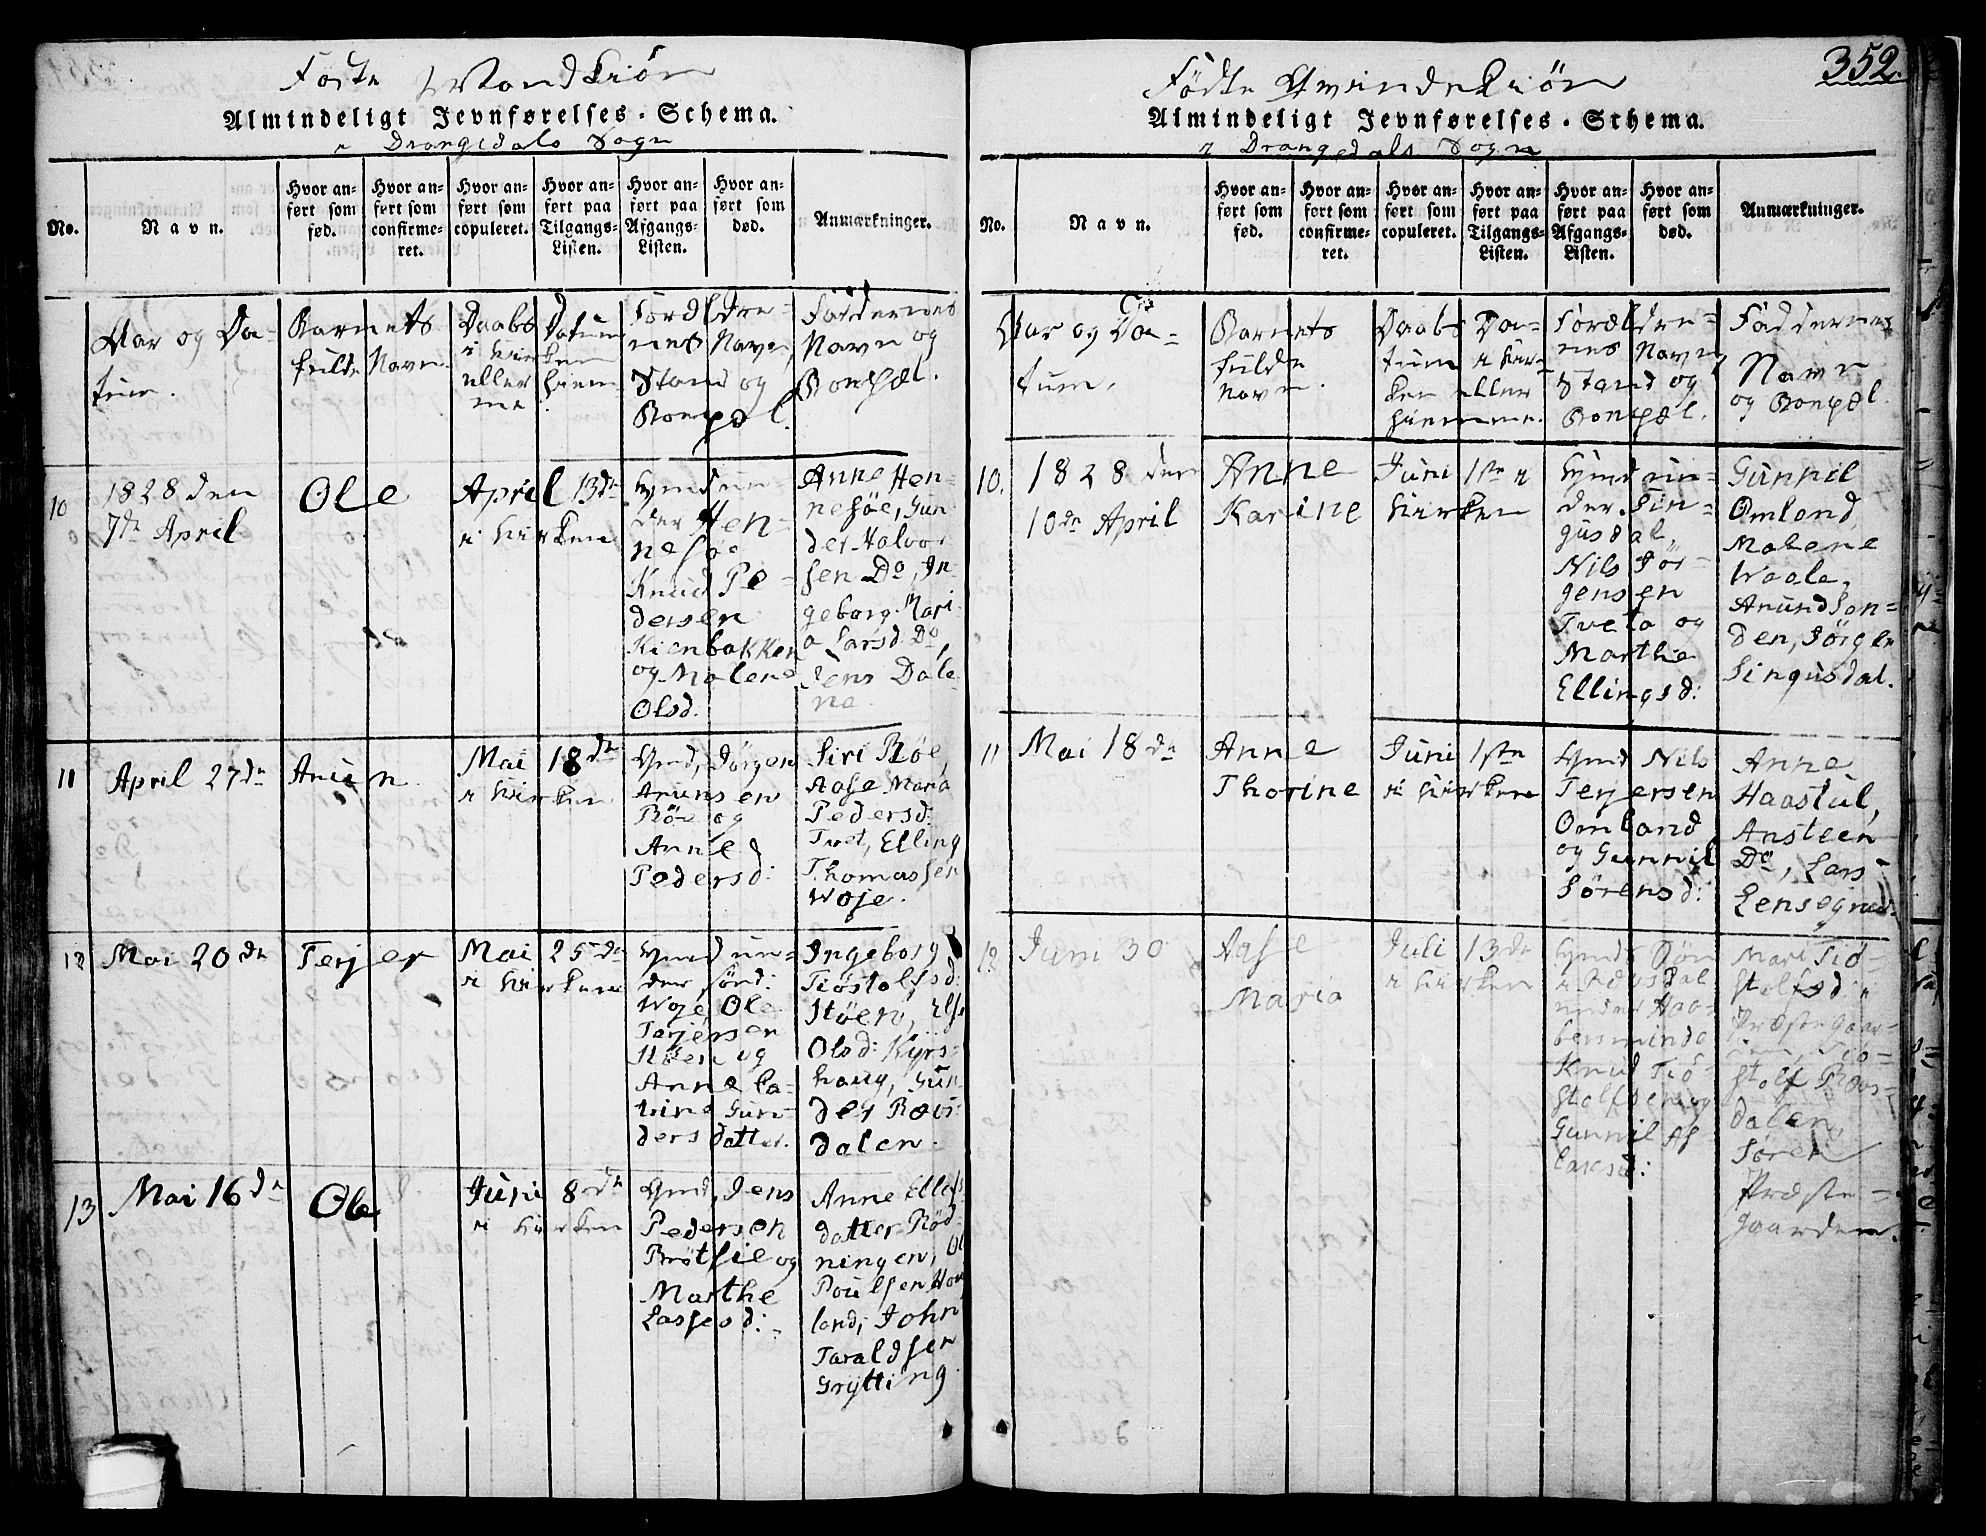 Fødte Mandkiøn
Almindeligt Jevnførelses-Schema.
i Drangedals Sogn
No.
Navn.
Hvor an-
ført som
fød.
Hvor an-
ført som
confirme-
ret.
Hvor an-
ført som
copuleret.
Hvor an-
ført paa
Tilgangs-
Listen.
Hvor an-
ført paa
Afgangs-
Listen.
Hvor an-
ført som
død.
Anmærkninger.
Aar og Da-
tum.
Barnets
fulde Navn.
Daabs Datum
i Kirken
eller hiem-
me.
Forældre-
nes Navn,
Stand og
Bopæl.
Faddernes
Navn og
Bopæl.
10
1828 den
7de April
Ole
April 13de
i Kirken
Gmd un-
der Hen-
nesøe
Knud Pe-
dersen
Kienbakken
og Malene
Olsd:
Anne Hen-
nesøe, Gun-
der Halvor-
sen Do, In-
geborg Mari-
a Larsd. Do,
Jens Dale-
ne.
11
April 27de
Mai 18de
i Kirken
Gmd, Jørgen
Arensen
Bö og
Anne
Pedersd:
Siri Bøe,
Aase Maria
Pedersd:
Tvet, Elling
Thomassen
Woje.
12
Mai 20de
Terjer
Mai 25de
i Kirken
Gmd un-
der
Woje Ole
Terjersen
Støen og
Anne Ca-
trine Gun-
ders datter.
Ingeborg
Tiöstolfsd:
Støen, Else
Olsd: Kyrs-
haug, Gun-
der Ræis-
dalen.
13
Mai 16de
Ole
Juni 8de
i Kirken
Gmd, Jens
Pedersen
Brøtsie og
Marthe
Lassesd:
Anne Ellefs
datter Rød-
ningen, Ol
Poulsen Hou-
land, John
Taraldsen
Grytting
352.
Fødte Qvindekiøn
Almindeligt Jevnførelses-Schema.
i Drangedals Sogn
No.
Navn.
Hvor an-
ført som
fød.
Hvor an-
ført som
confirme-
ret.
Hvor an-
ført som
copuleret.
Hvor an-
ført paa
Tilgangs-
Listen.
Hvor an-
ført paa
Afgangs-
Listen.
Hvor an-
ført som
død.
Anmærkninger.
Aar og Da-
tum.
Barnets
fulde
Navn.
Daabs Da-
tum i Kir-
ken eller
hiemme.
Foræl dre-
nes Navn,
Stand og
Bopæl.
Faddernes
Navn
og Bopæl.
10.
1828 den
10de April
Anne
Karine
Juni 1ste i
Kirken
Gmd un-
der Sin-
gusdal,
Nils Jør-
gensen
Tveta og
Marthe
Ellingsd:
Gunnil
Omland,
Malene
Waale,
Anund Son-
den, Jörgen
Singusdal.
11
Mai 18de
Anne
Thorine
Juni 1ste
i Kirken
Gmd Nils
Terjersen
Omland
og Gunnil
Sörensd:
Anne
Haastul,
Ansteen
Do, Lars
Lensegrav-
12
Juni 30
Aase
Maria
Juli 13de
i Kirken
under Haa-
Knud Tiö-
stolfsen og
Gunnil As-
lacsd:
Mari Tiö-
stolfsd: i
Præstegaar-
den, Tiö-
stolf Ræis-
dalen,
Søren
Præste-
gaarden.